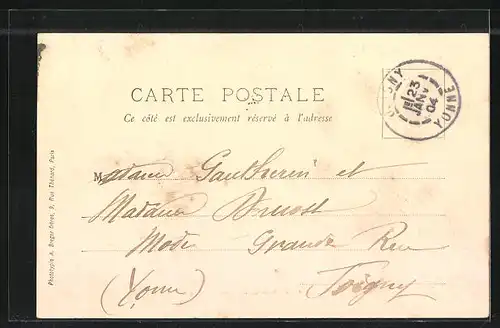 CARTE POSTALE
Ce côté est exclusivement réservé à l'adresse
23
JANV
04
YONNE
Madame et
Madame
Mode Grande Rue
(Yonne) Joigny
Phototypie A. Breger frères, 9, Rue Thénard, Paris